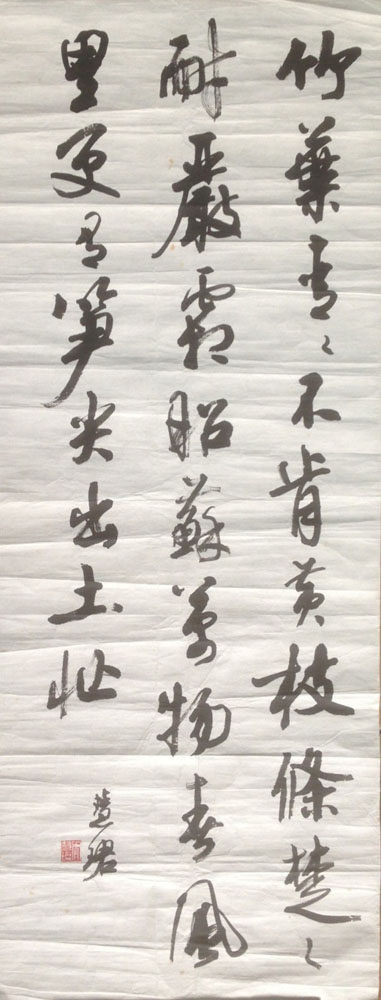 竹葉青々不肯黄枝條楚々
耐嚴霜昭蘇萬物春風
里更有笋尖出土忙
慧珺